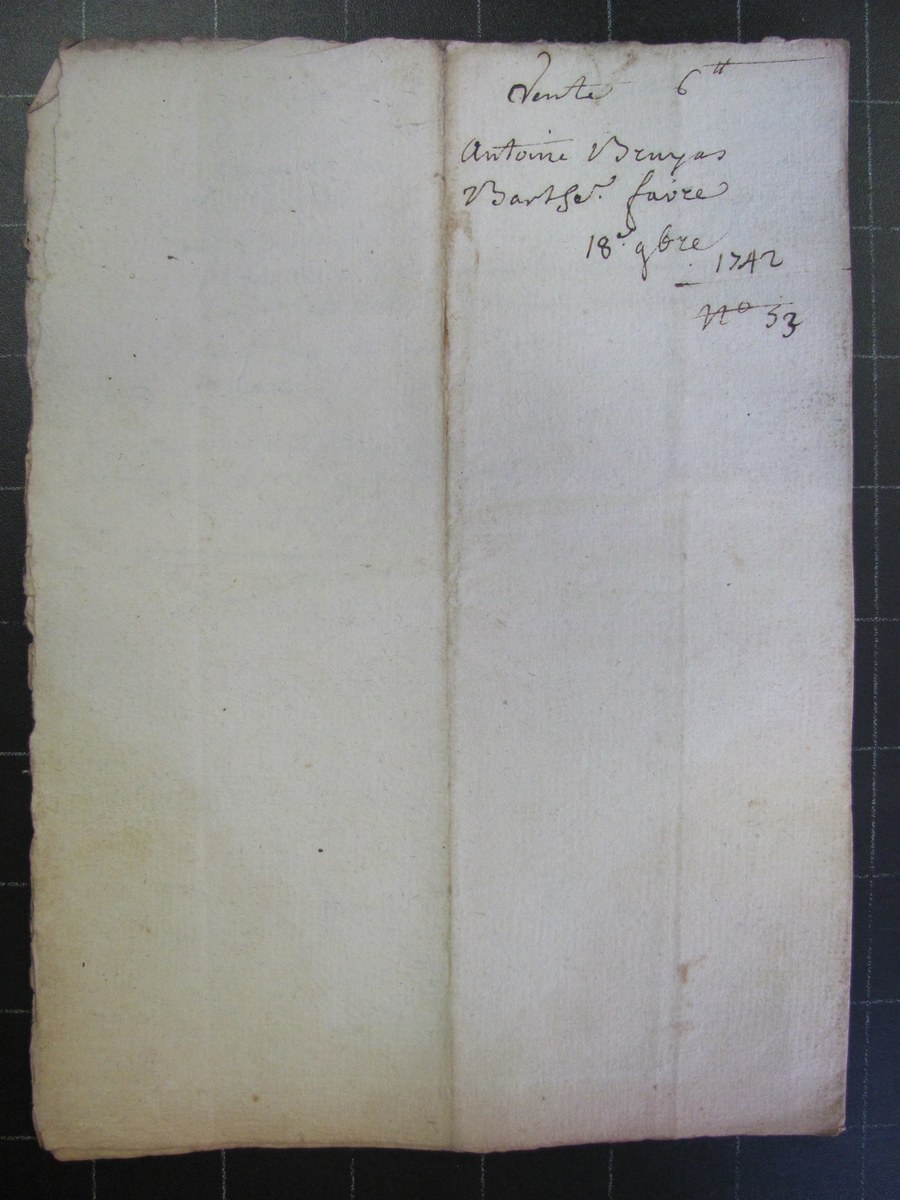 Vente 6tt
Antoine Bruyas
Barthe. favre
18e. 9bre
1742
No 53